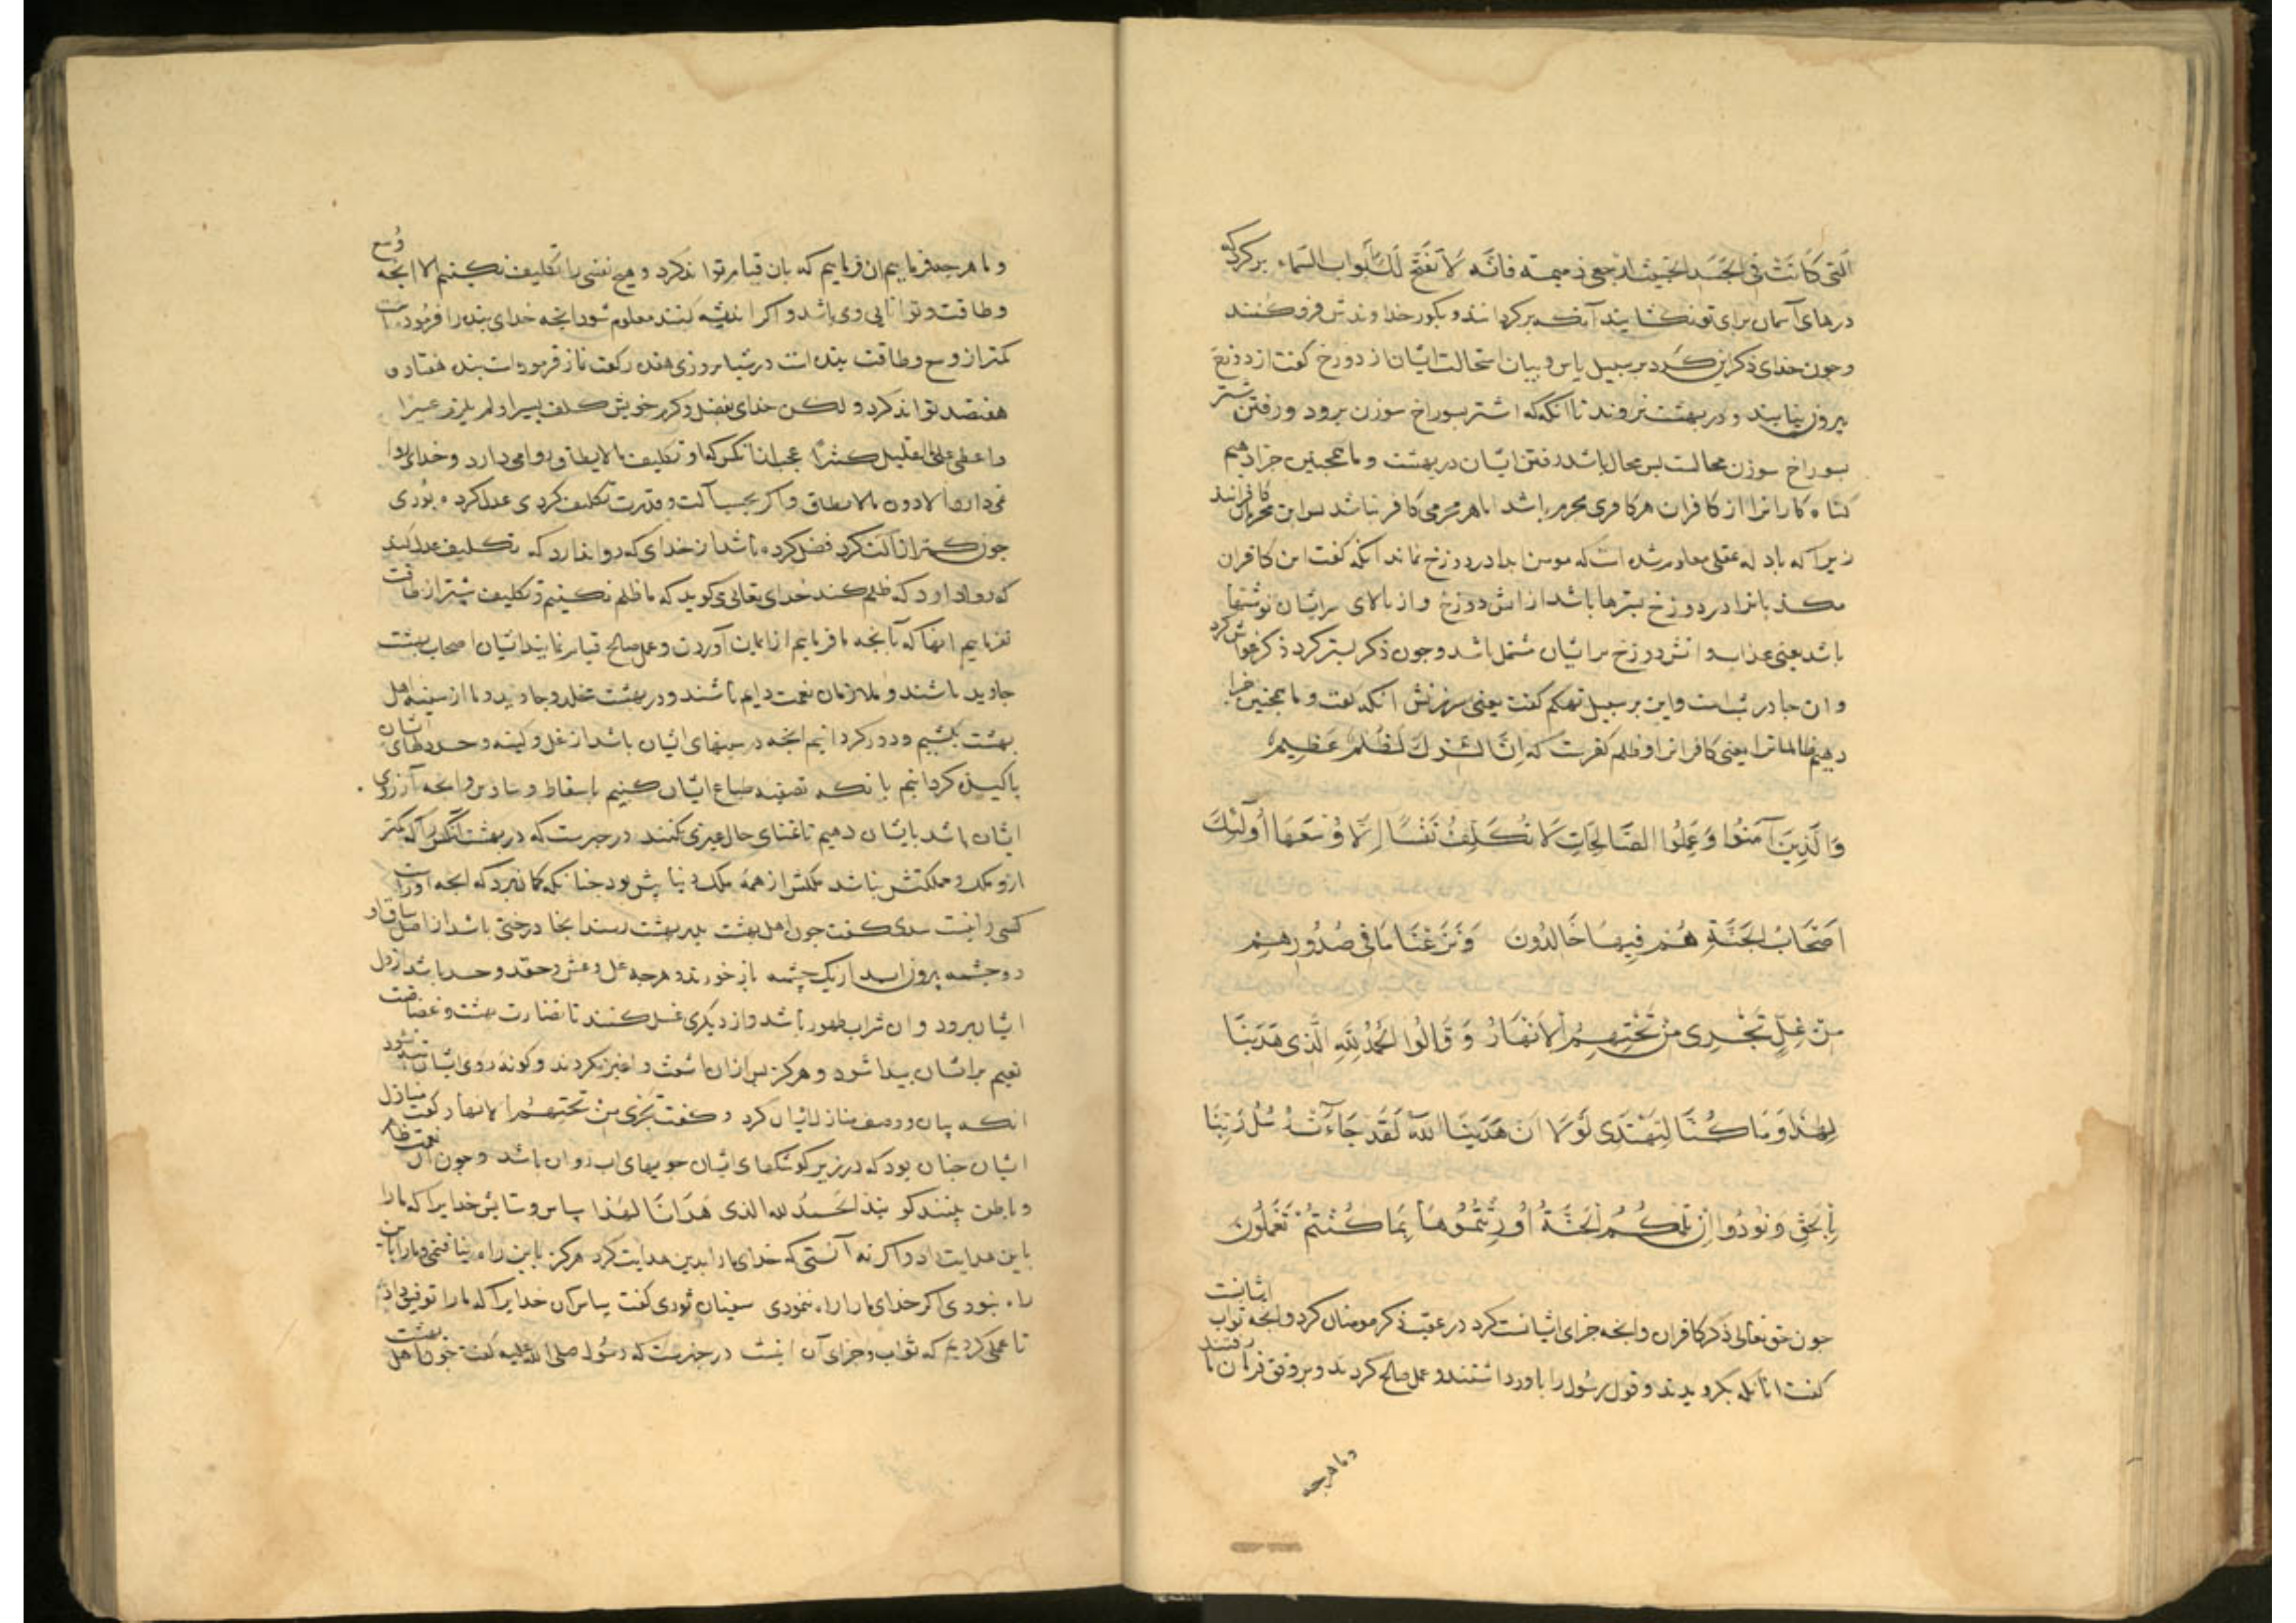 الّتی کَانَتْ فی الجَسَد الخبیث ارجعی ذمیمة فانّه لَا تُفَتَّحُ لَكَ ابواب السَّماء برکرد که
درهای آسمان برای تو نکشایند آنکه برکردانند و بکور خداوندش فرو کنند
و جون خدای ذکر این کرد بر سبیل یاس و بیان استحالت ایشان از دوزخ کفت از دوزخ
بیرون نیایند و در بهشت نروند تا آنکه که اشتر بسوراخ سوزن برود و رفتن شتر
بسوراخ سوزن محالست بس محال باشد رفتن ایشان در بهشت و ما همجنین جزا دهیم
کناه کارانرا از کافران هر کافری مجرم باشد اما هر مجرمی کافر نباشد بس این مجرمان کافرانند
زیرا که بادله عقلی معلوم شده است که مومن ابدا در دوزخ نماند آنکه کفت این کافران
مکذبانرا در دوزخ بسترها باشد از آتش دوزخ و از بالای سر ایشان بوششها
باشد یعنی عذاب و آتش دوزخ بر ایشان مشتمل باشد و جون ذکر بستر کرد ذکر غواش کرد
و ان جادر شب است و این بر سبیل تهکم کفت یعنی سرزنش آنکه کفت و ما همجنین جزا
دهیم ظالمانرا یعنی کافرانرا و ظلم کفرست که اِنَّ الشّرك لَظُلْمٌ عَظِیمٌ
وَالَّذِینَ آمَنُوا وَعَمِلُوا الصَّالِحَاتِ لَا نُكَلِّفُ نَفْسًا اِلَّا وُسْعَهَا أُولَئِكَ
اَصْحَابُ الْجَنَّةِ هُمْ فِیهَا خَالِدُونَ وَنَزَعْنَا مَا فِی صُدُورِهِمْ
مِنْ غِلٍّ تَجْرِی مِنْ تَحْتِهِمُ الْاَنْهَارُ وَقَالُوا الْحَمْدُ لِلّهِ الَّذِی هَدَینَا
لِهَذَا وَمَا كُنَّا لِنَهْتَدِیَ لَوْلَا اَنْ هَدَینَا اللّهُ لَقَدْ جَاءَتْ رُسُلُ رَبِّنَا
بِالْحَقِّ وَنُودُوا اَنْ تِلْكُمُ الْجَنَّةُ اُورِثْتُمُوهَا بِمَا كُنْتُمْ تَعْمَلُونَ
جون حق تعالی ذکر کافران و انجه جزای ایشانست کرد در عقب ذکر مومنان کرد و انجه ثواب ایشانست
کفت انانکه بکرویدند و قول رسول را باور داشتند و عمل صالح کردند و بر وفق فرمان ما رفتند
و ما هرجه
و ما هرجه فرماییم ان فرماییم که بان قیام تواند کرد و هیج نفسی را تکلیف نکنیم الا انجه وُسع
و طاقت و توانایی وی باشد و اکر اندیشه کنند معلوم شود انجه خدای بنده را فرموده است
کمتر از وسع و طاقت بنده است در شبانروزی هفده رکعت نماز فرموده است بنده هفتاد و
هفتصد تواند کرد و لکن خدای بفضل و کرم خویش کلف یسیرا و لم یلزم عسیرا
و اعطی علی القلیل کثیرا عجب از انکس که او تکلیف ما لا یطاق روا می دارد و خدای روا
نمی دارد الا دون ما لا یطاق و اکر بحسب آلت و قدرت تکلیف کردی عدل کرده بودی
جون کمتر از آلت کرد فضل کرده باشد از خدای که روا ندارد که تکلیف عدل کند
که روا دارد که ظلم کند خدای تعالی می کوید که ما ظلم نکنیم و تکلیف بیشتر از طاقت
نفرماییم انها که بانجه ما فرماییم از ایمان آوردن و عمل صالح قیام نمایند ایشان اصحاب بهشت
جاوید باشند و ملازمان نعمت دایم باشند و در بهشت مخلد و جاوید و ما از سینه اهل
بهشت بکشیم و دور کردانیم انجه در سینهای ایشان باشد از غل و کینه و حسد و دلهای ایشان
باکیزه کردانیم بانکه تصفیه طباع ایشان کنیم باسقاط وساوس و انجه آرزوی
ایشان باشد بایشان دهیم تا تمنای حال غیری نکنند در خبرست که در بهشت انکس را که کمتر
ازو ملک و مملکتش نباشد ملکش از همه ملک دنیا بیش بود جنانکه کمان برد که انجه اوراست
کسی را نیست سدی کفت جون اهل بهشت بدر بهشت رسند انجا درختی باشد از اصل ساق او
دو جشمه بیرون اید از یک جشمه باز خورند و هرجه غل و غش و حقد و حسد باشد از دل
ایشان برود و ان شراب طهور باشد و از دیکری غسل کنند تا نضارت بهشت و غضاضت
نعیم بر ایشان بیدا شود و هرکز بس از ان اشعث و اغبر نکردند و کونه روی ایشان نشود
انکه بیان و وصف منازل ایشان کرد و کفت تجری من تحتهم الانهار کفت منازل
ایشان جنان بود که در زیر کوشکهای ایشان جویهای اب روان باشد و جون آن نعمت ظاهر
و باطن بینند کویند الحمد لله الذی هَدَانَا لهذا سپاس و ستایش خدایرا که ما را
باین هدایت داد و اکر نه آنستی که خدای ما را بدین هدایت کرد هرکز باین راه نیافتمی و ما را باین
راه نبودی اکر خدای ما را راه ننمودی سفیان ثوری کفت سپاس ان خدایرا که ما را توفیق داد
تا عملی کردیم که ثواب و جزای آن اینست در خبرست که رسول صلی الله علیه کفت جون اهل بهشت